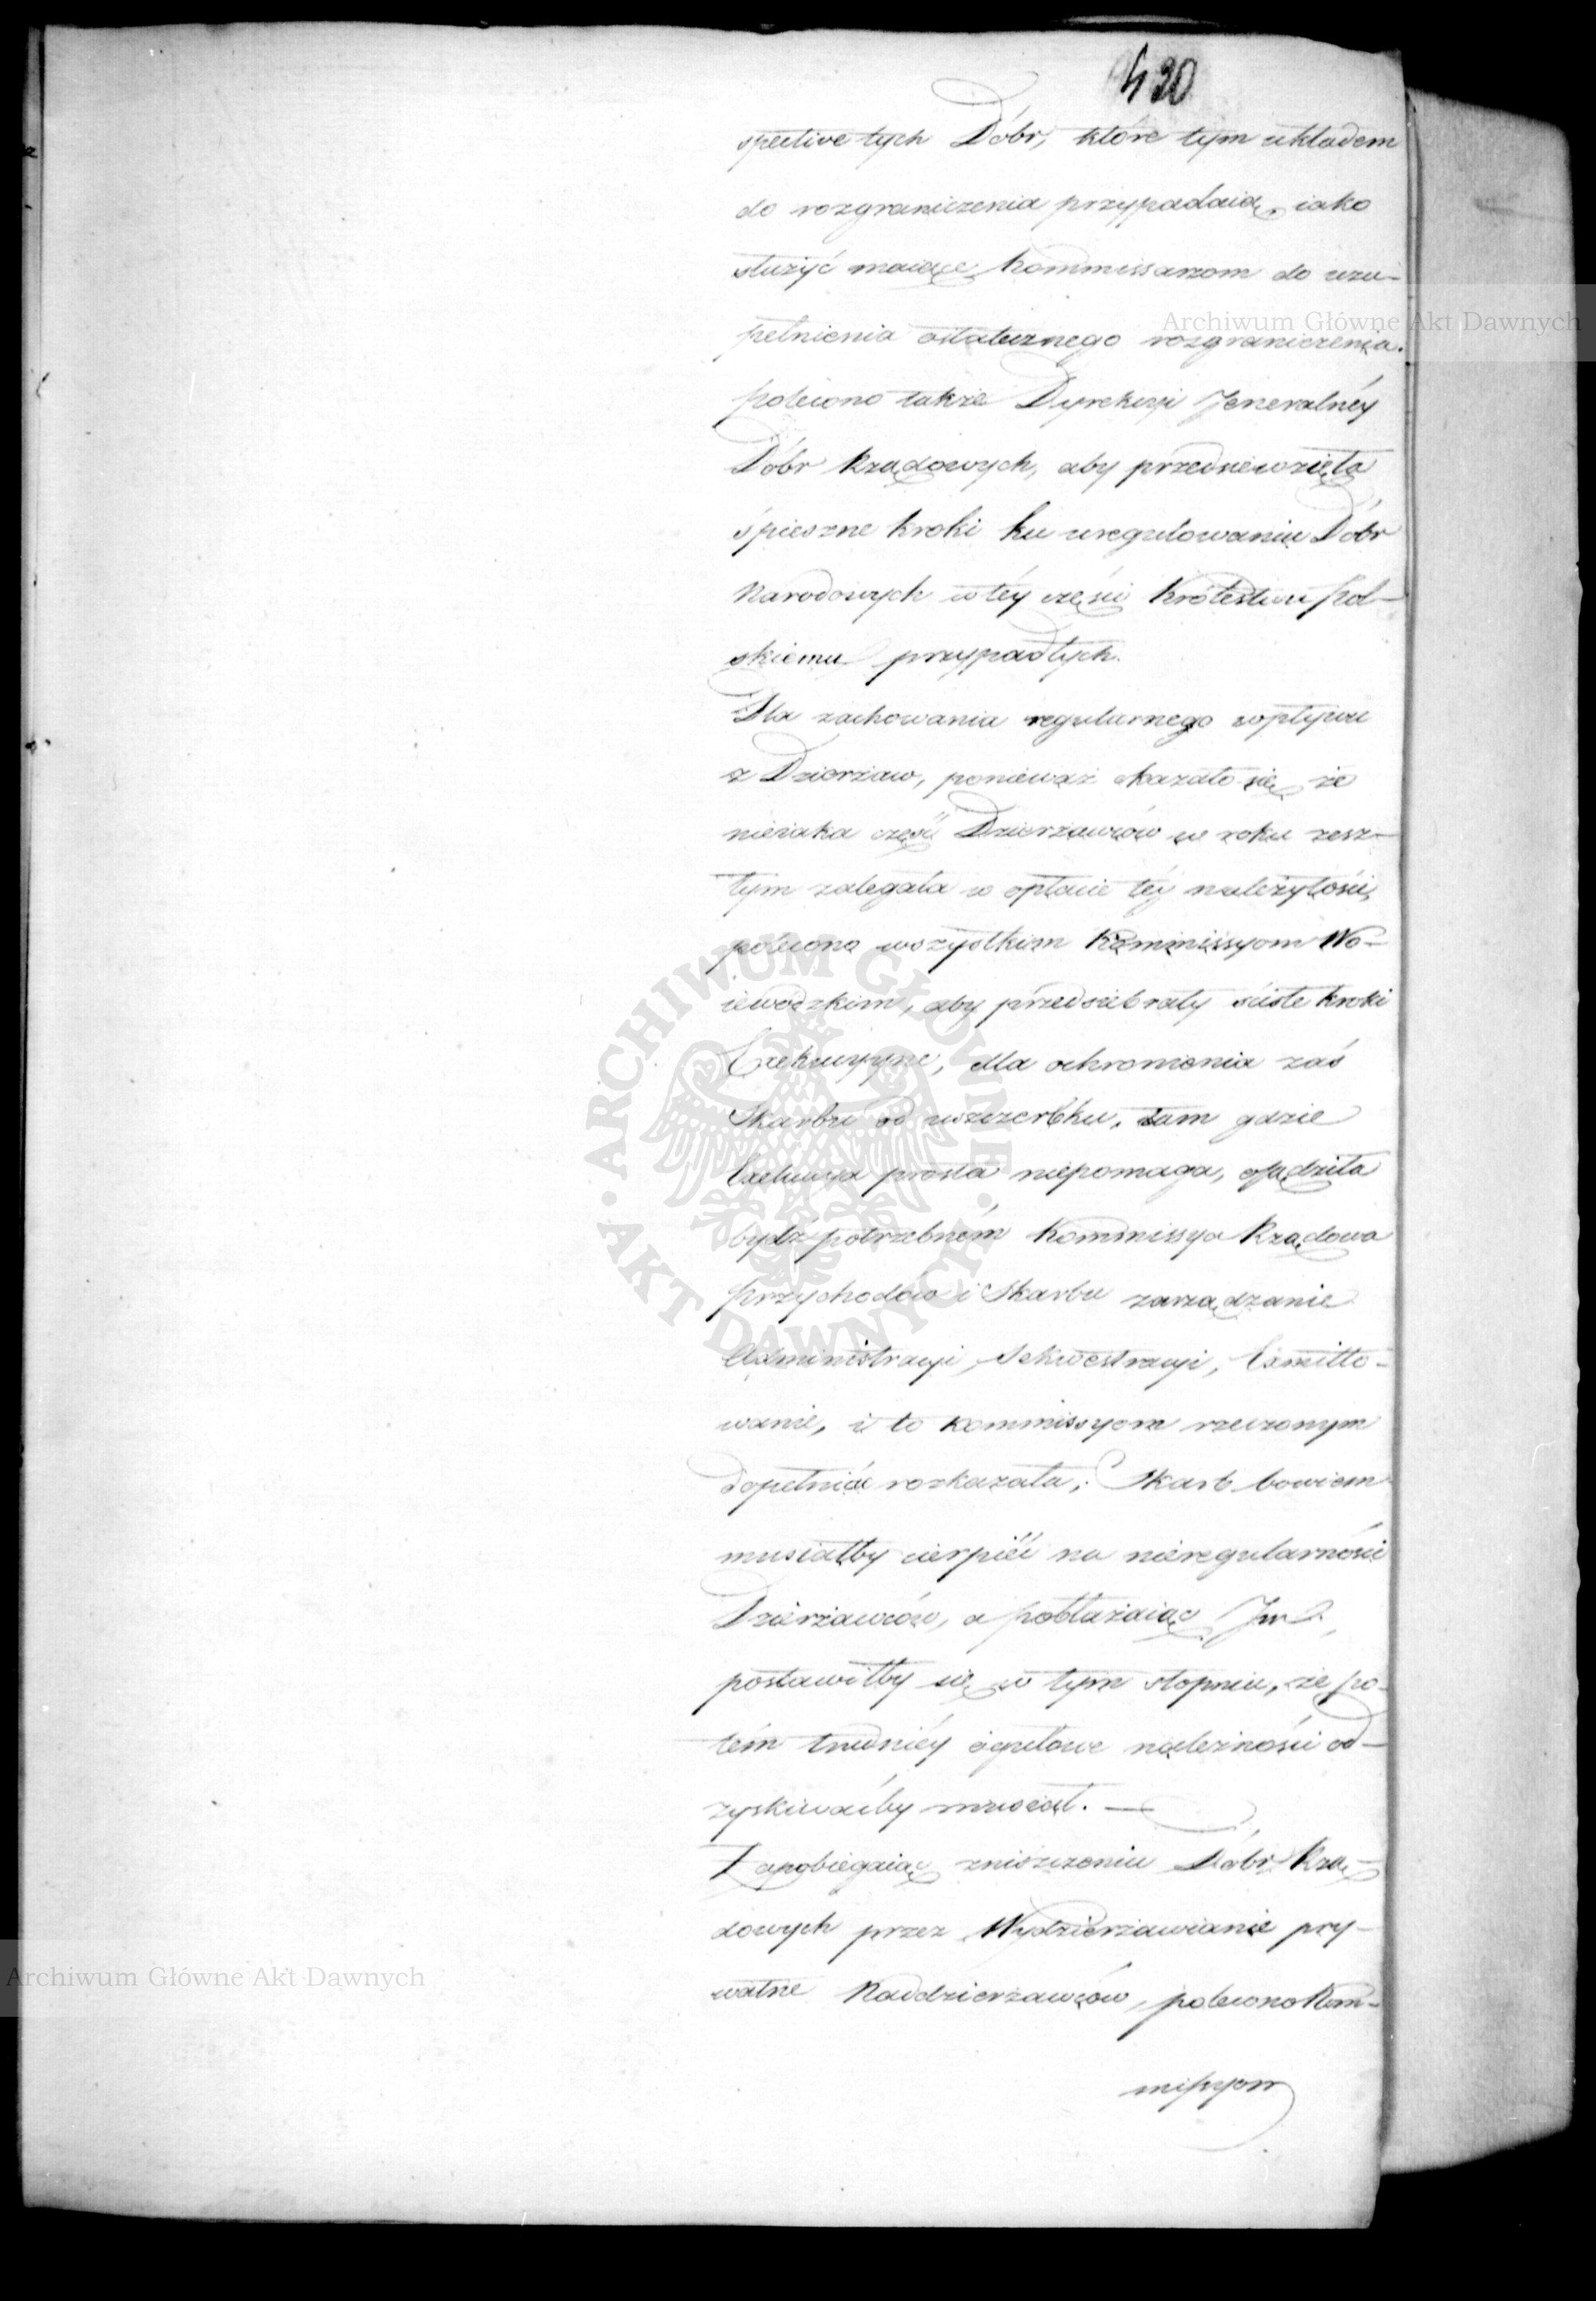 420
spective tych Dóbr, które tym układem
do rozgraniczenia przypadaią, iako
służyć maiące Kommissarzom do uzu-
pełnienia ostatecznego rozgraniczenia.
polecono także Dyrekcyi Jeneralnéy
Dóbr Rządowych, aby przedsiewzięła
śpieszne kroki ku uregulowaniu Dóbr
Narodowych w téy części Królestwu Pol-
skiemu przypadłych.
Dla zachowania regularnego wpływu
z Dzierżaw, ponieważ okazało się, że
nieiaka część Dzierżawców w roku zesz-
łym zalegała w opłacie téy należytości,
polecono wszystkim Kommissyom Wo-
iewódzkim, aby przedsiebrały ścisłe kroki
Exekucyyne, dla ochronienia zaś
Skarbu od uszczerbku, tam gdzie
Exekucya prosta niepomaga, osądziła
bydź potrzebném Kommissya Rządowa
Przychodów i Skarbu zarządzanie
Administracyi, Sekwestracyi, Exmitto-
wanie, i to Kommissyom rzeczonym
dopełniać rozkazała; Skarb bowiem
musiałby cierpiéć na nieregularności
Dzierżawców, a pobłażaiąc Im
postawiłby się w tym stopniu, że po-
tém trudniéy ogułowe należności od-
zyskiwaćby musiał. —
Zapobiegaiąc zniszczeniu Dóbr Rzą-
dowych przez Wydzierżawianie pry-
watne Naddzierżawców, polecono Kom-
missyom
Archiwum Główne Akt Dawnych
ARCHIWUM GŁÓWNE · AKT DAWNYCH ·
Archiwum Główne Akt Dawnych